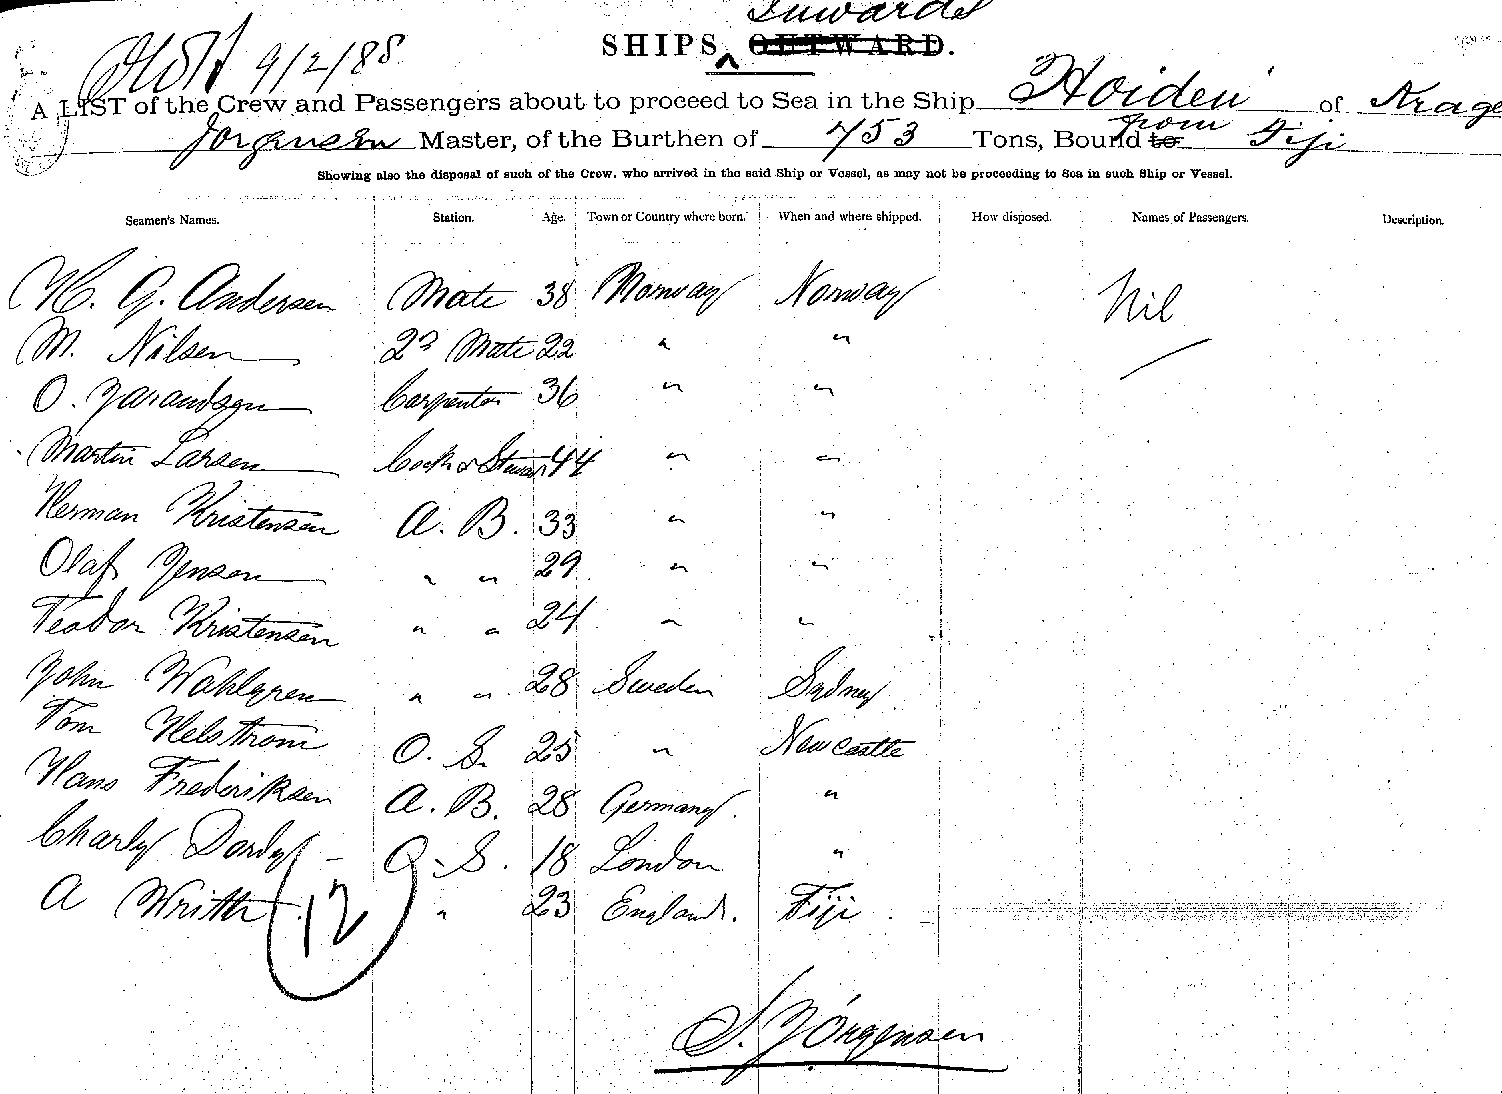 Inwards
SHIPS, OUTWARD.
9/2/88
A LIST of the Crew and Passengers about to proceed to Sea in the Ship Hoiden of Krage
Jorgensen Master, of the Burthen of 753 Tons, Bound to from Fiji
Showing also the disposal of such of the Crew, who arrived in the said Ship or Vessel, as may not be proceeding to Sea in such Ship or Vessel.
Seamen's Names. Station. Age. Town or Country where born. When and where shipped. How disposed. Names of Passengers. Description.
H. G. Andersen Mate 38 Norway Norway Nil
M. Nilsen 2d Mate 22 " "
O. Carpenter 36 " "
Martin Larsen Cook & Steward 44 " "
Herman Kristensen A. B. 33 " "
Olaf Jensen " " 29 " "
Teodor Kristensen " " 24 " "
John Wahlgren " " 28 Sweden Sydney
Tom Helstrom O. S. 25 " Newcastle
Hans Frederiksen A. B. 28 Germany. "
Charly Dordy - O. S. 18 London "
A Writth " 23 England. Fiji
12
S. Jörgensen